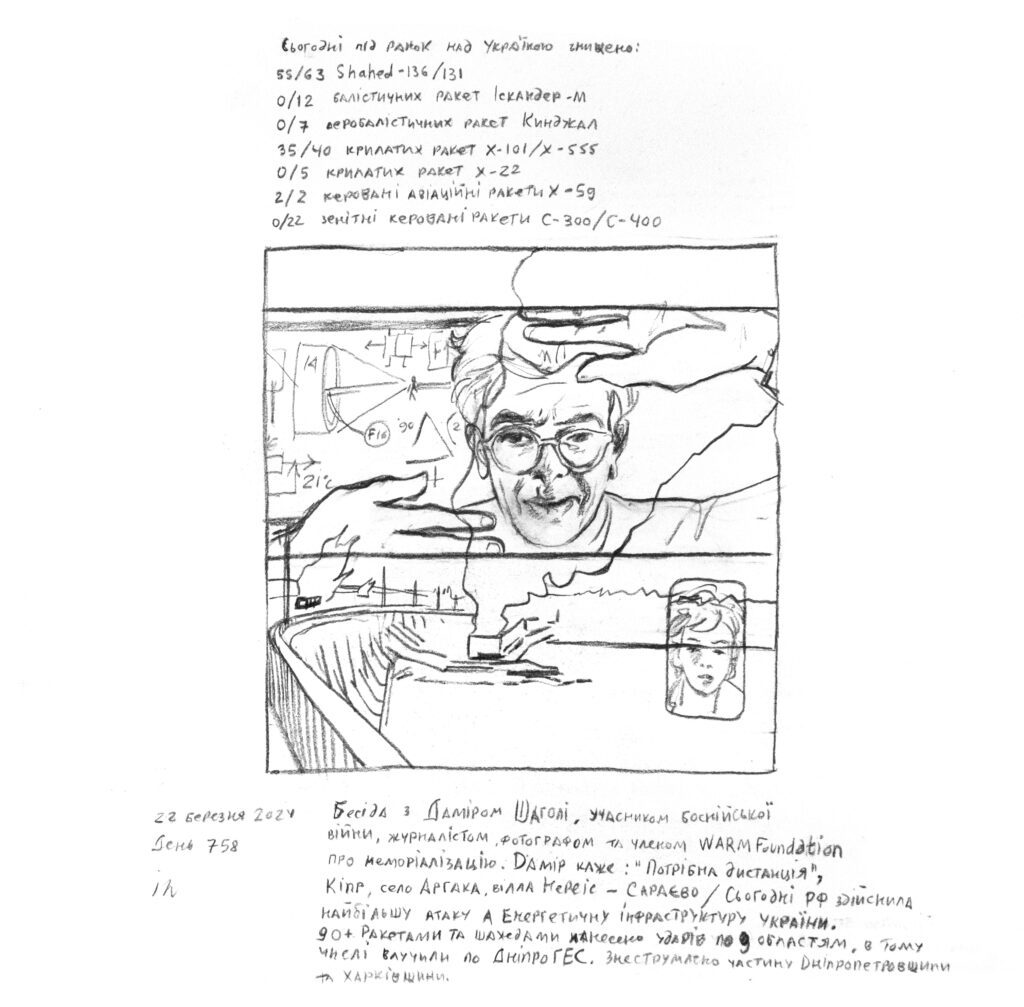 Сьогодні під ранок над Україною знищено:
55/63 Shahed-136/131
0/12 балістичних ракет Іскандер-М
0/7 аеробалістичних ракет Кинджал
35/40 крилатих ракет Х-101/Х-555
0/5 крилатих ракет Х-22
2/2 керовані авіаційні ракети Х-59
0/22 зенітні керовані ракети С-300/С-400
14
F16
'90
21с
22 березня 2024
День 758
Бесіда з Даміром Шаголі, учасником боснійської
війни, журналістом, фотографом та членом WARM Foundation
про меморіалізацію. Дамір каже: "Потрібна дистанція",
Кіпр, село Аргака, вілла Нереіс – Сараєво / Сьогодні РФ здійснила
найбільшу атаку а Енергетичну інфраструктуру України.
90+ Ракетами та шахедами нанесено ударів по 9 областям, в тому
числі влучили по ДніпроГЕС. Знеструмлено частину Дніпропетровщини
та Харківщини.